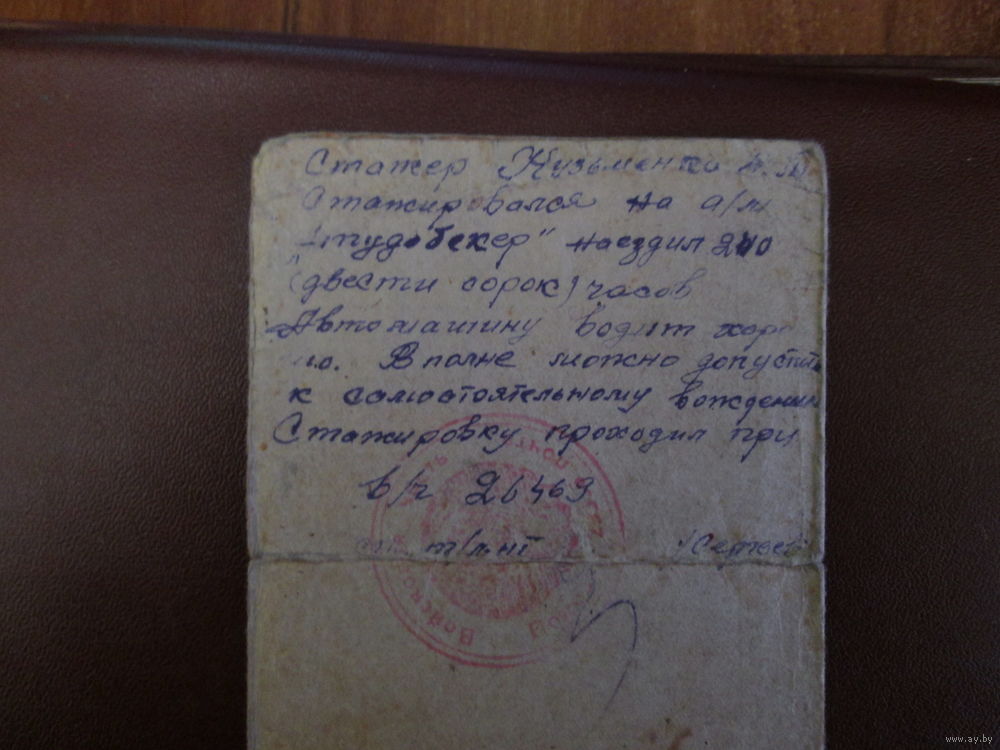 Стажер Кузьменко
Стажировался на а/м
"Студебекер" наездил 240
(двести сорок) часов
Автомашину водит хоро
шо. Вполне можно допустить
к самостоятельному вождению
Стажировку проходил при
в/ч 26469
т/л-нт
Войсковая часть
Полевая почта
www.ay.by